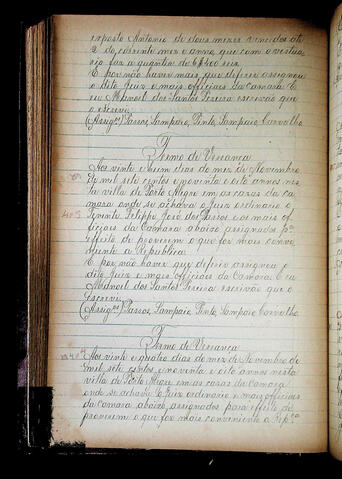 exposto Antonio de dous mezes vencidos até
2 do corrente mez e anno, que com o vestua
rio faz a quantia de 6$400 reis.
E por não haver mais que deferir assignou
o dito Juiz e mais officiaes da Camara. E
eu Manoel dos Santos Pereira escrivão que
o escrevi.
(Assigos) Passos, Sampaio, Pinto, Sampaio Carvalho.
Termo de Vereança
Aos vinte e um dias do mez de Novembro
de mil sete centos e noventa e oito annos nes
ta villa de Porto Alegre em as casas da Ca
mara onde se achava o Juiz ordinario o
Tenente Felippe José dos Passos e os mais of
ficiaes da Camara abaixo assignados pa
effeito de proverem o que for mais conve
niente a Republica.
E por não haver que deferir assignou o
dito Juiz e mais officiaes da Camara. E eu
Manoel dos Santos Pereira escrivão que o
escrevi.
(Assigos) Passos, Sampaio Pinto Sampaio Carvalho
Termo de Vereança
Aos vinte e quatro dias do mez de Novembro de
mil sete centos e noventa e oito annos nesta
villa de Porto Alegre em as casas da Camara
onde se achava o Juiz ordinario e mais officiaes
da Camara abaixo assignados para effeito de
proverem o que for mais conveniente a Repca